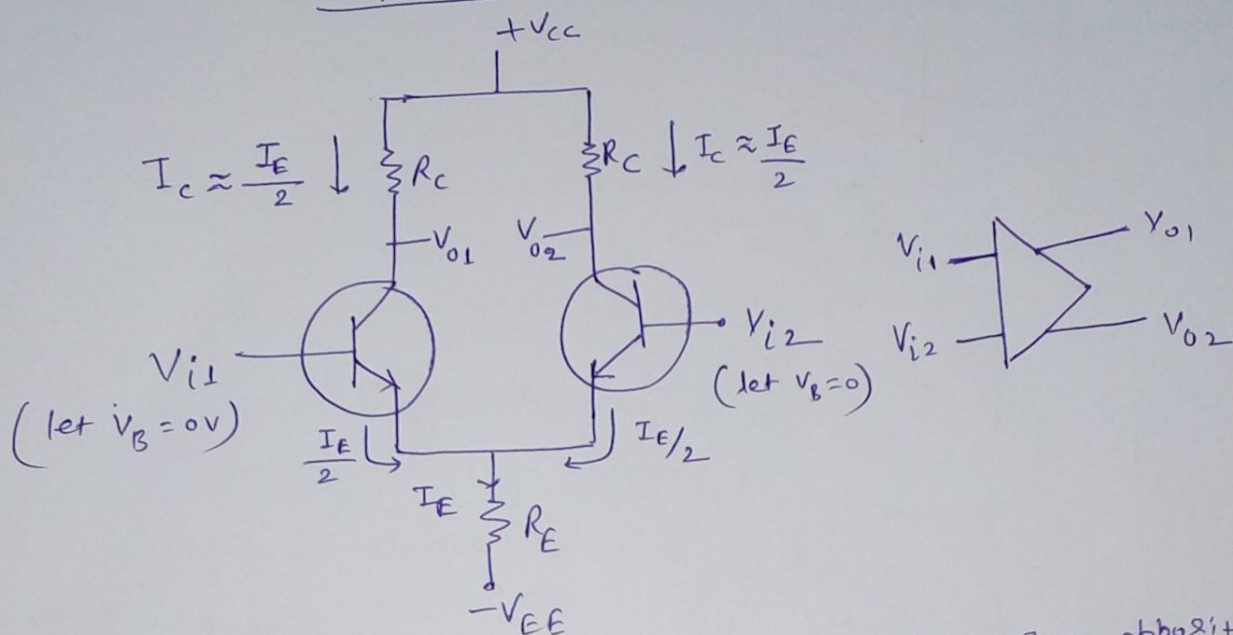 +VCC
IC ≈ IE/2 ↓ RC
RC ↓ IC ≈ IE/2
V01
V02
Vi1
(let VB = 0V)
Vi2
(let VB = 0)
IE/2
IE/2
IE
RE
-VEE
Vi1
V01
Vi2
V02